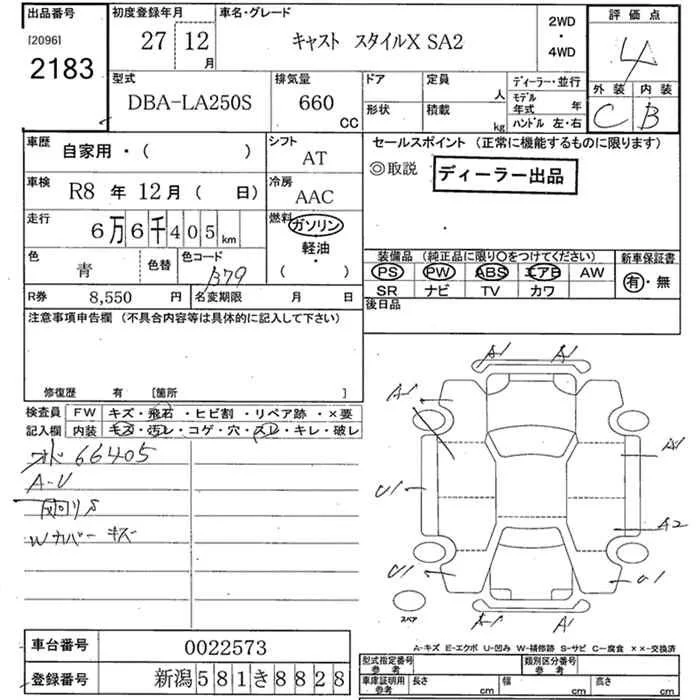 出品番号 初度登録年月 車名・グレード 2WD ・ 4WD 評価点
[2096] 2183 27 12月 キャスト スタイルX SA2 4
型式 排気量 ドア 定員 人 ディーラー・並行 外装 内装
DBA-LA250S 660 CC 形状 積載 kg モデル年式 年 ハンドル 左・右 C B
車歴 自家用・( ) シフト AT セールスポイント (正常に機能するものに限ります)
◎取説 ディーラー出品
車検 R8 年 12月 ( 日) 冷房 AAC
走行 6万6千405km 燃料 ガソリン 軽油・( )
色 青 色替 色コード B79
装備品 (純正品に限り○をつけてください) 新車保証書
PS PW ABS エアB AW 有・無
SR ナビ TV カワ
R券 8,550 円 名変期限 月 日 後日品
注意事項申告欄 (不具合内容等は具体的に記入して下さい)
修復歴 有 [箇所 ]
検査員 FW キズ・飛石・ヒビ割・リペア跡・×要
記入欄 内装 キズ・汚レ・コゲ・穴・スレ・キレ・破レ
66405
A-U
Wカバー キズ
A1 A1
A1
A1
U1
A2
U1 U1
A-1 A1
スペア
A-キズ E-エクボ U-凹み W-補修跡 S-サビ C-腐食 ××-交換済
車台番号 0022573
登録番号 新潟581き8828
型式指定番号 参考 類別区分番号 参考
車庫証明用 参考 長さ cm 幅 cm 高さ cm